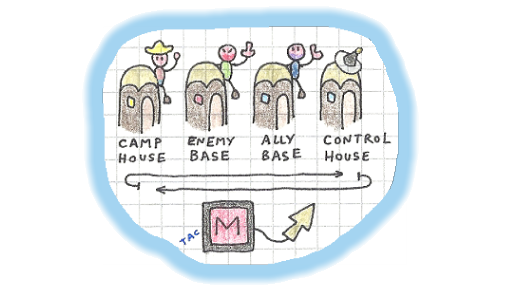 CAMP HOUSE
ENEMY BASE
ALLY BASE
CONTROL HOUSE
TAC
M